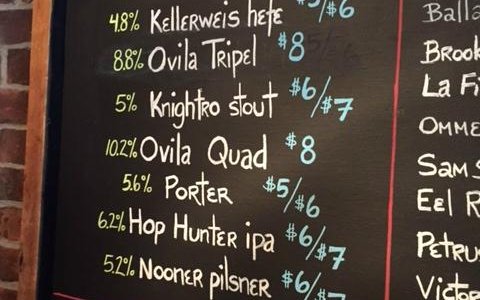 4.8% Kellerweis hefe $5/$6
8.8% Ovila Tripel $8
5% Knightro stout $6/$7
10.2% Ovila Quad $8
5.6% Porter $5/$6
6.2% Hop Hunter ipa $6/$7
5.2% Nooner pilsner $6/$
Balla
Brook
La Fi
Omme
Sam S
Eel R
Petrus
Victor